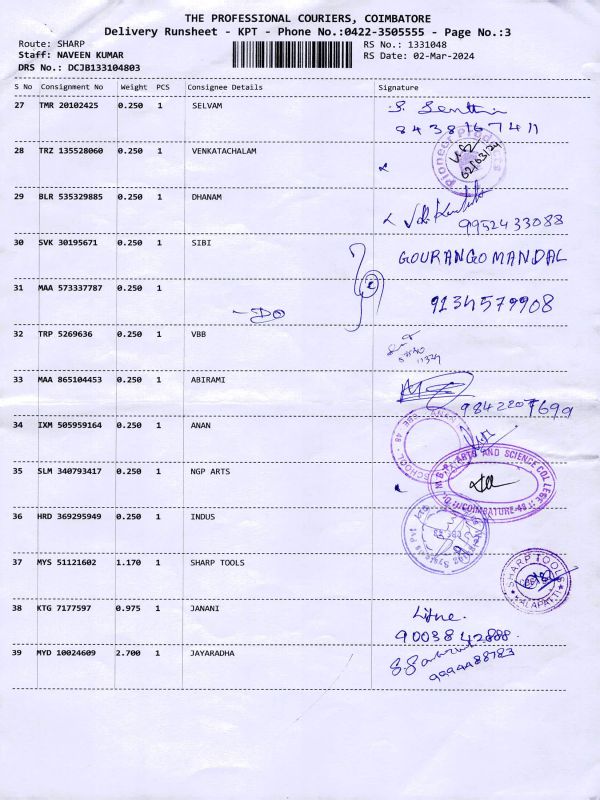 THE PROFESSIONAL COURIERS, COIMBATORE
Delivery Runsheet - KPT - Phone No.:0422-3505555 - Page No.:3
Route: SHARP RS No.: 1331048
Staff: NAVEEN KUMAR RS Date: 02-Mar-2024
DRS No.: DCJB133104803
S No Consignment No Weight PCS Consignee Details Signature
27 TMR 20102425 0.250 1 SELVAM
28 TRZ 135528060 0.250 1 VENKATACHALAM
29 BLR 535329885 0.250 1 DHANAM
9952433088
30 SVK 30195671 0.250 1 SIBI GOURANGO MANDAL
31 MAA 573337787 0.250 1 9134579908
-DO
32 TRP 5269636 0.250 1 VBB
33 MAA 865104453 0.250 1 ABIRAMI
34 IXM 505959164 0.250 1 ANAN
35 SLM 340793417 0.250 1 NGP ARTS
ARTS AND SCIENCE COLLEGE
COIMBATORE-48
36 HRD 369295949 0.250 1 INDUS
37 MYS 51121602 1.170 1 SHARP TOOLS
SHARP TOOLS
KALAPATTI
38 KTG 7177597 0.975 1 JANANI
39 MYD 10024609 2.700 1 JAYARADHA